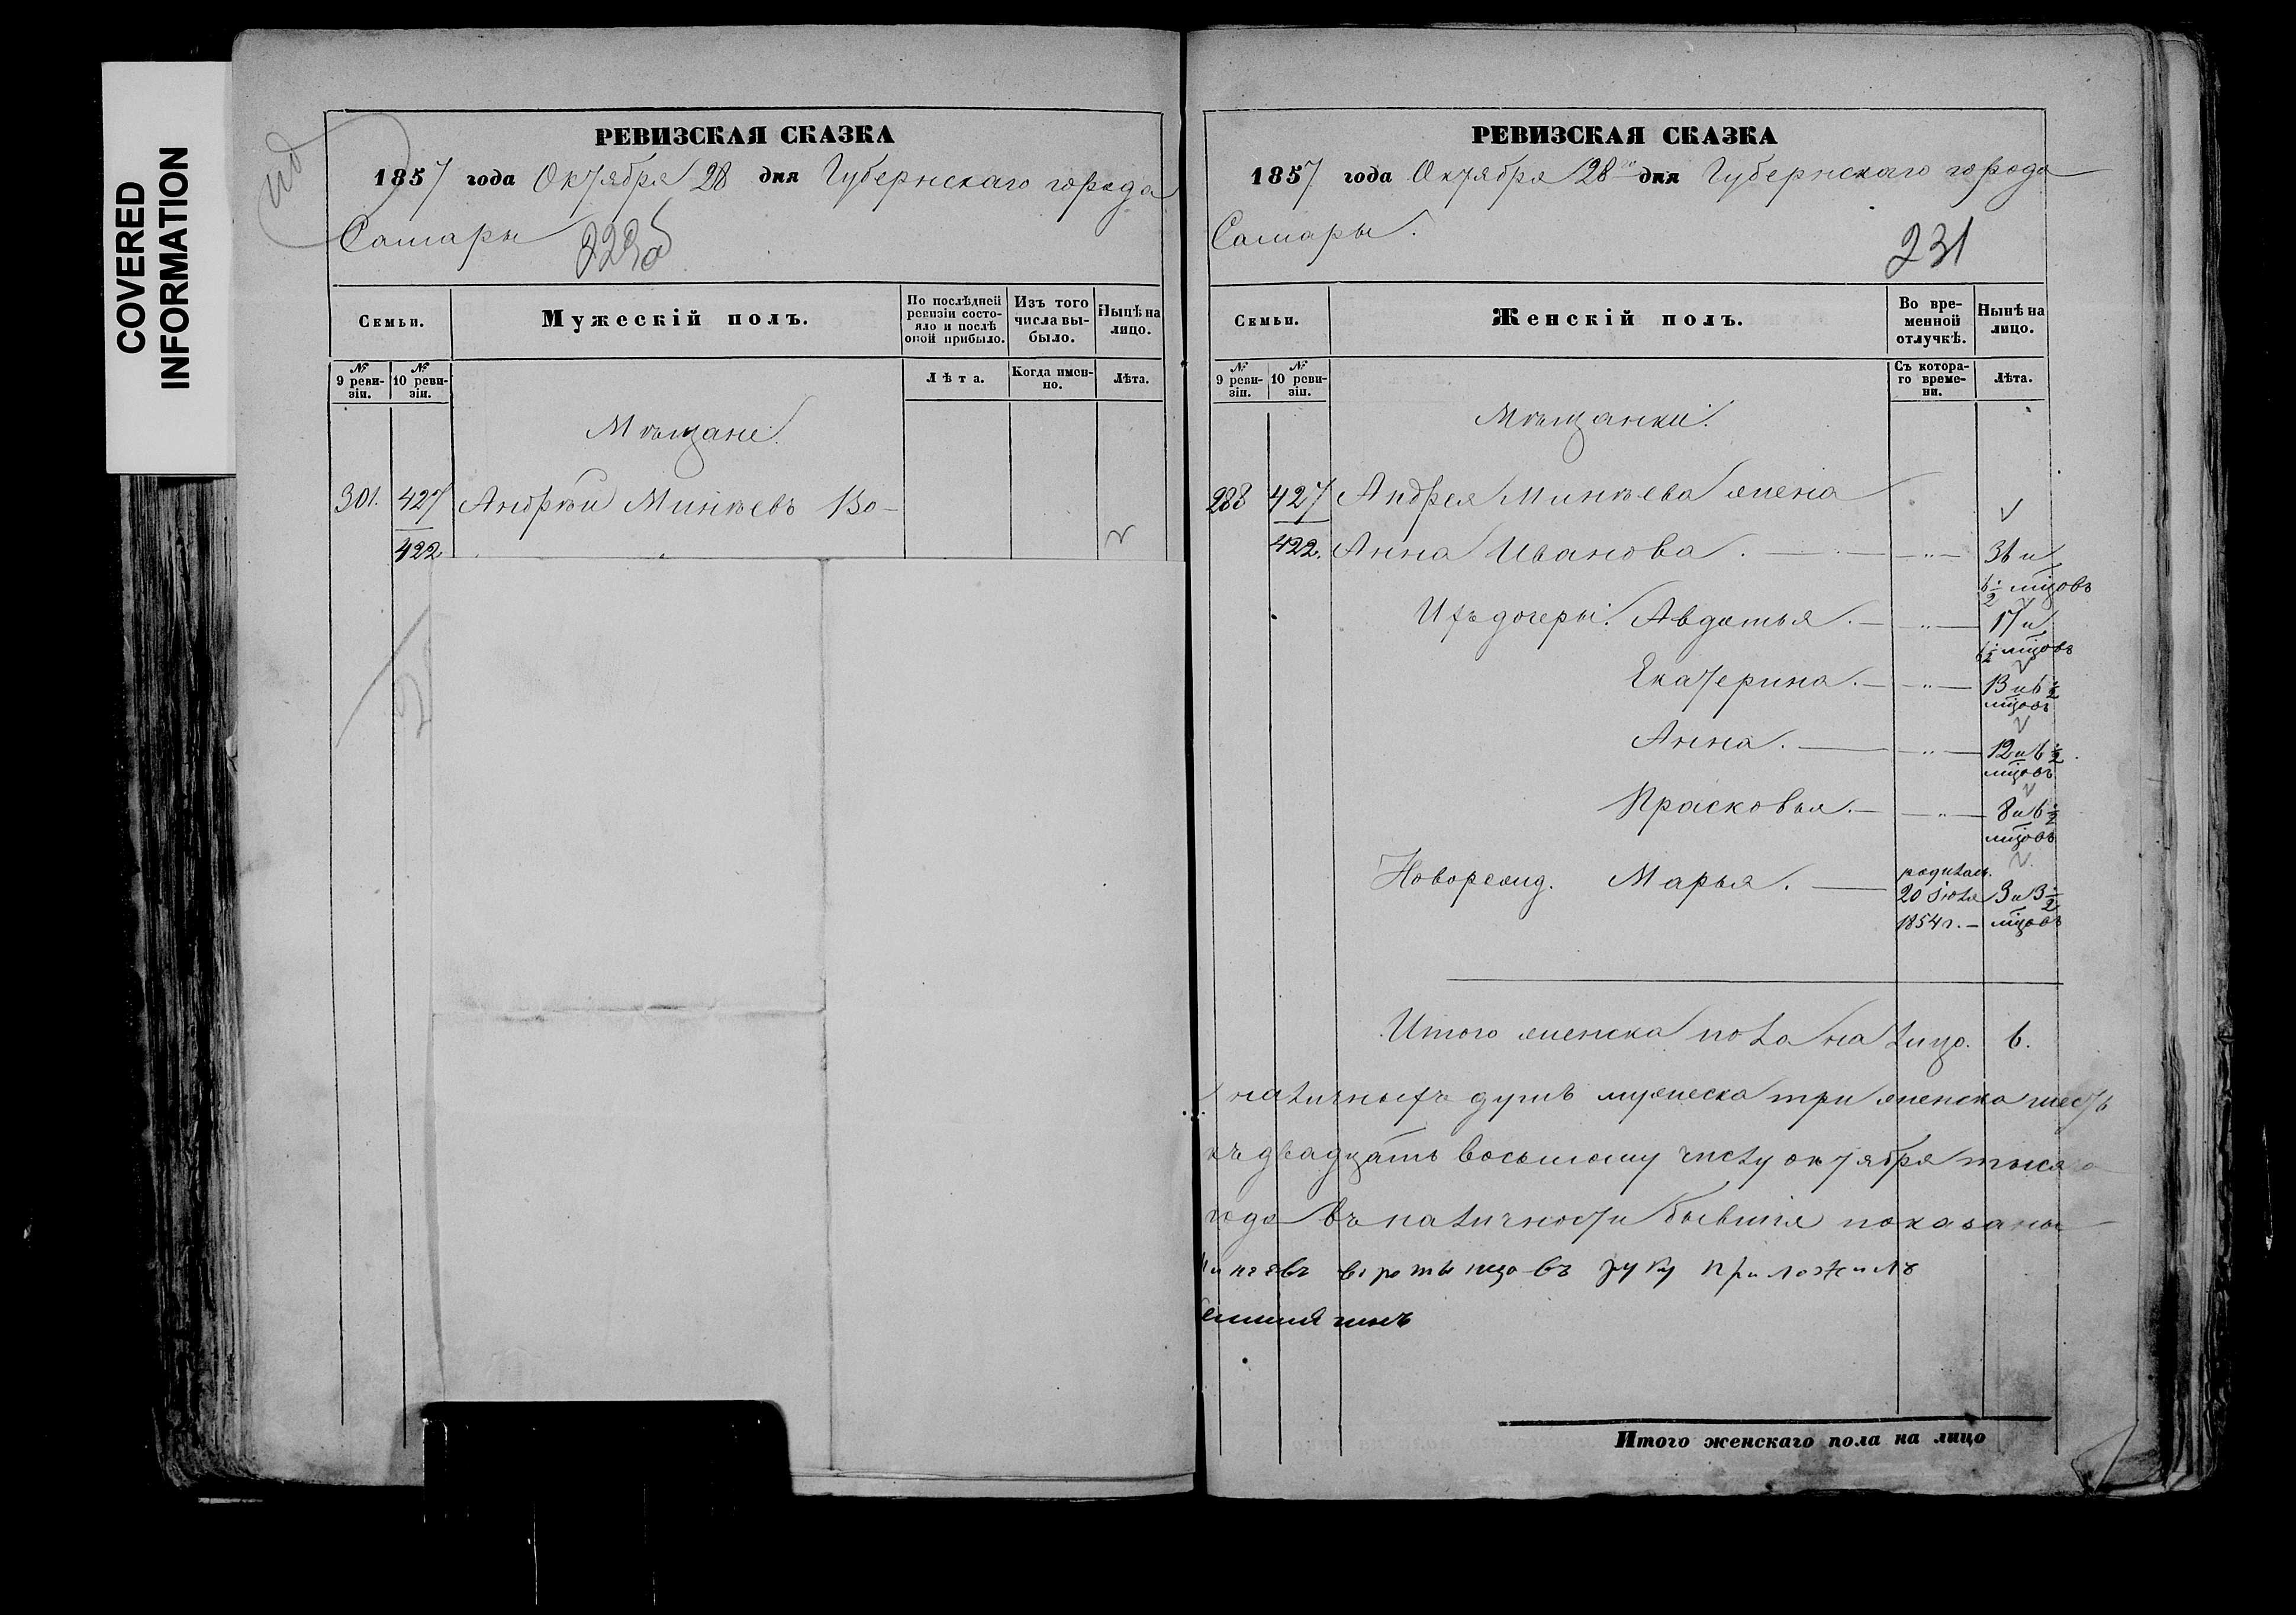 COVERED
INFORMATION
РЕВИЗСКАЯ СКАЗКА
1857 года Октября 28 дня Губернскаго города
Самары
Семьи.
Мужескій полъ.
По послѣдней ревизіи состояло и послѣ оной прибыло.
Изъ того числа выбыло.
Нынѣ на лицо.
№ 9 ревизіи.
№ 10 ревизіи.
Лѣта.
Когда именно.
Лѣта.
Мѣщане.
301. 427 Андрѣй Минѣевъ Во-
422
РЕВИЗСКАЯ СКАЗКА
1857 года Октября 28 дня Губернскаго города
Самары.
231
Семьи.
Женскій полъ.
Во временной отлучкѣ.
Нынѣ на лицо.
№ 9 ревизіи.
№ 10 ревизіи.
Съ котораго времени.
Лѣта.
Мѣщанки.
288 427 Андрея Минѣева жена
422. Анна Иванова. — " — 36 и
6 1/2 мцовъ
Ихъ дочери: Авдотья. — " — 17 и
6 1/2 мцовъ
Екатерина. — " — 13 и 6 1/2
мцовъ
Анна. — " — 12 и 6 1/2
мцовъ
Прасковья. — " — 8 и 6 1/2
мцовъ
Новорожд. Марья. — родилась
20 Іюля 3 и 3 1/2
1854 г. — мцовъ
Итого женска пола на лицо. 6.
наличныхъ душъ мужеска три женска шесть
къ двадцать восьмому числу октября тысяча
года въ наличности бывшія показаны
руку приложилъ
Итого женскаго пола на лицо